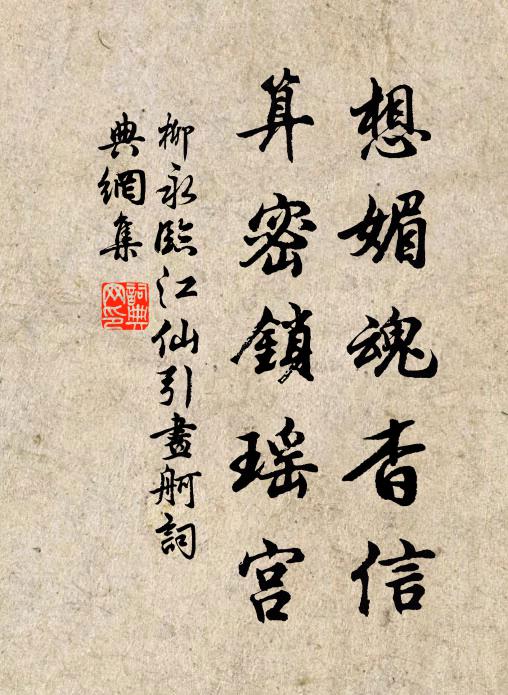 想媚魂杳信
算密鎖瑤宮
柳永臨江仙引畫舸詞
典網集
詞典網印